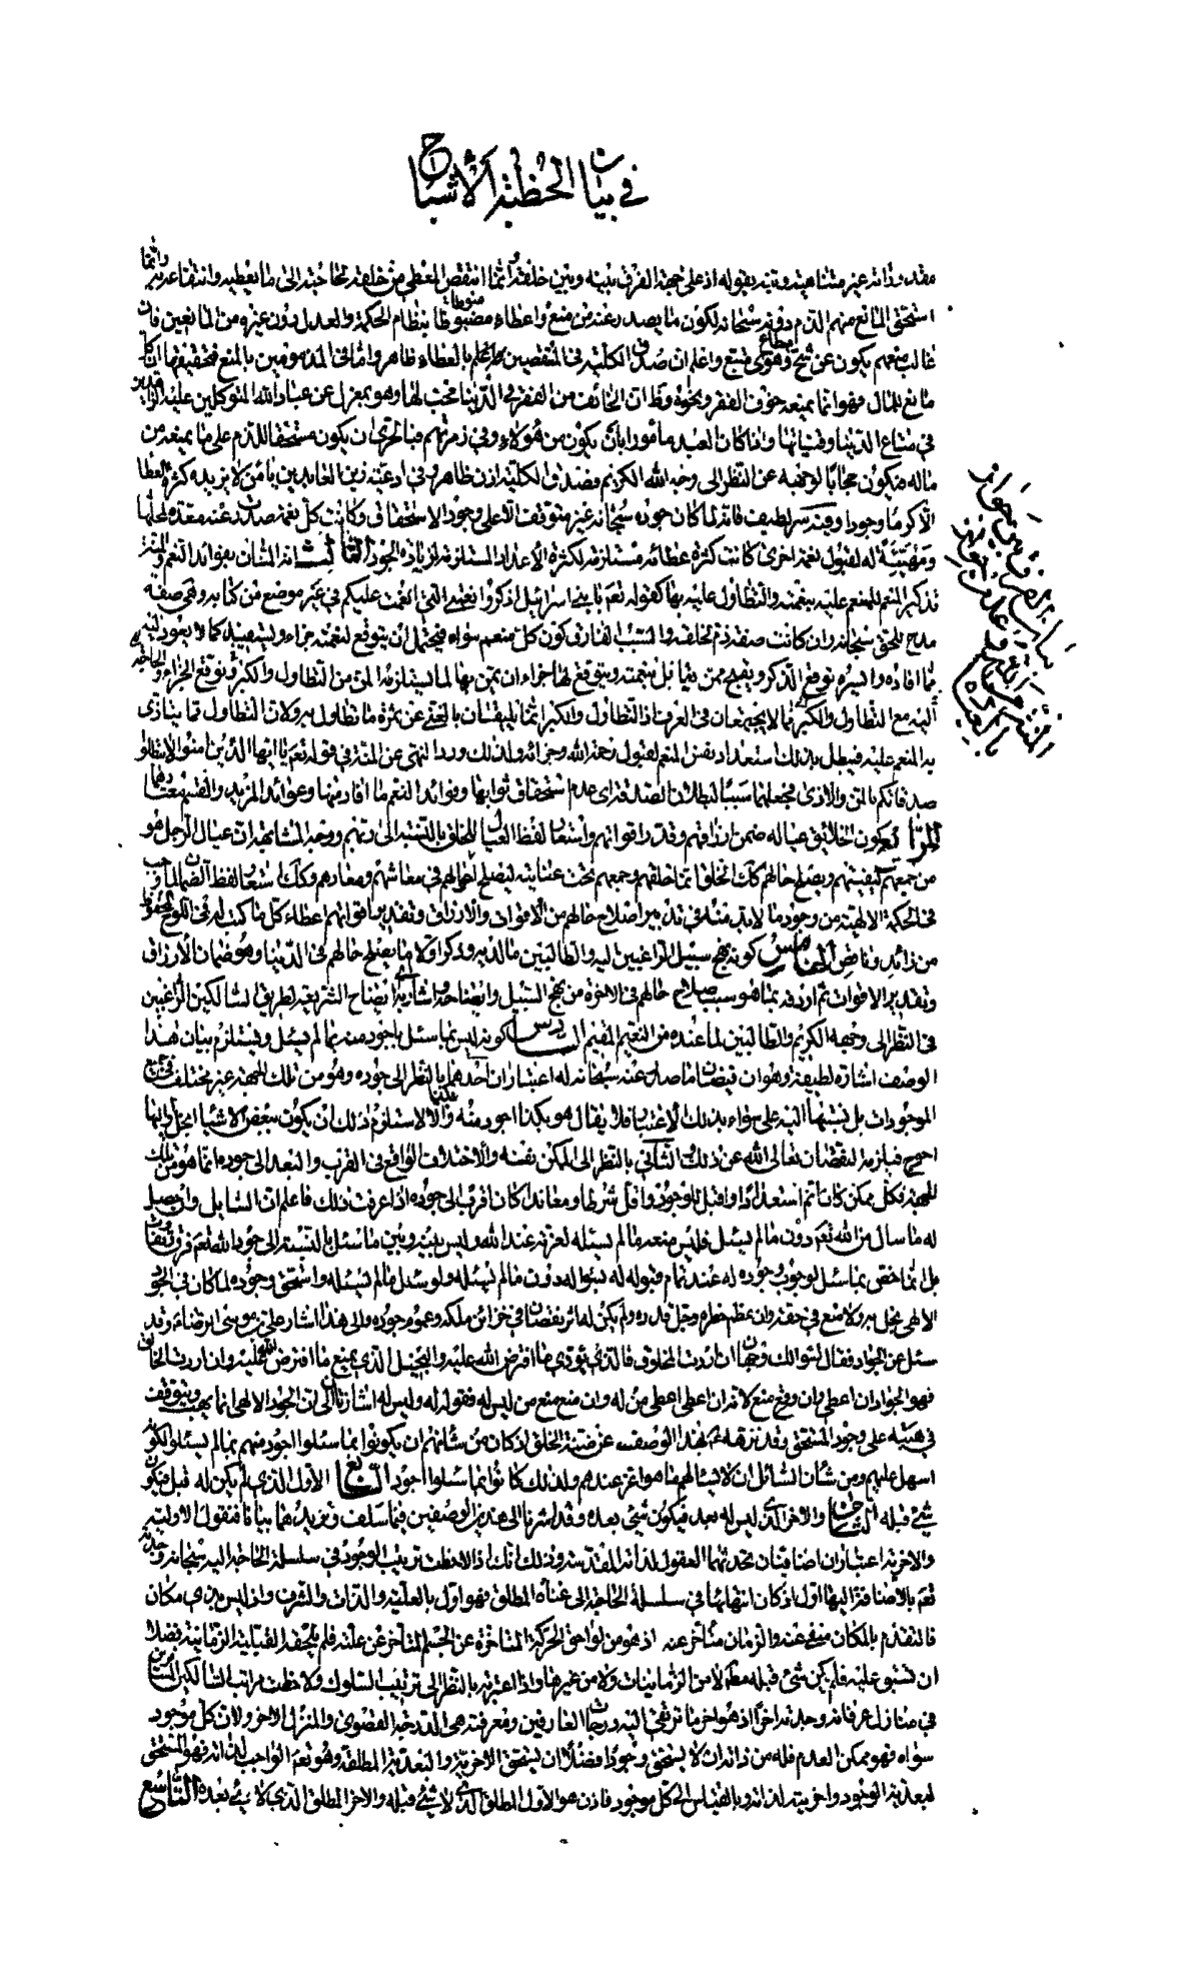 في بيان الخطبة الأشباح
مقدوراته غير متناهية ونبه بقوله اذ على جهة الفرق بينه وبين خلقه وانما انتقص المعطى من خلقه لحاجته الى ما يعطيه وانتفاعه به وانما
استحق المانع منهم الذم دونه سبحانه لكون ما يصدر عنه من منع واعطاء مضبوطا بنظام الحكمة والعدل دون غيره من المانعين فان
غالب منعهم يكون عن شح مطاع وهوى متبع واعلم ان صدق الكلية في المنتقصين بالعطاء ظاهر واما في المذمومين بالمنع فتحقيقها ان كل
مانع للمال فهو انما يمنعه خوف الفقر ونحوه وظاهر ان الخائف من الفقر في الدنيا محب لها وهو بمعزل عن عباد الله المتوكلين عليه الزاهدين
في متاع الدنيا وقنياتها واذا كان العبد مأمورا بأن يكون من هؤلاء وفي زمرتهم فبالحرى ان يكون مستحقا للذم على ما يمنعه من
ماله فيكون حجابا لوجهه عن النظر الى وجه الله الكريم فصدق الكلية اذن ظاهر وفي ادعية زين العابدين يا من لا يزيده كثرة العطا
الا كرما وجودا وفيه سر لطيف فانه لما كان جوده سبحانه غير متوقف الا على وجود الاستحقاق وكانت كل نعمة صدرت عنه معدة لمحلها
ومهيئة له لقبول نعمة اخرى كانت كثرة عطائه مستلزمة لكثرة الاعداد المستلزمة لزيادة الجود الثالث انه المنان بفوائد النعم والمنة
تذكير المنعم للمنعم عليه بنعمته والتطاول عليه بها كقوله تعالى يا بني اسرائيل اذكروا نعمتي التي انعمت عليكم في غير موضع من كتابه وهي صفة
مدح للحق سبحانه وان كانت صفة ذم لخلقه والسبب الفارق كون كل منعم سواه فيحتمل ان يتوقع لنعمته جزاء او يستفيد كمالا يعود اليه
مما افاده وايسره توقع الذكر ويقبح ممن يقابل بنعمته ويتوقع لها جزاء ان يمن بها لما يستلزمه المن من التطاول والكبر وتوقع الجزاء والحاجة
اليه مع التطاول والكبر مما لا يجتمعان في العرف اذ التطاول والكبر انما يليقان بالغني عن ثمرة ما تطاول به ولان التطاول مما يتأذى
به المنعم عليه فيبطل بذلك استعداد نفس المنعم لقبول رحمة الله وجزائه ولذلك ورد النهي عن المنة في قوله تعالى يا ايها الذين امنوا لا تبطلوا
صدقاتكم بالمن والاذى فجعلهما سببا لبطلان الصدقة اي عدم استحقاق ثوابها وفوائد النعم ما افاد منها وعوائد المزيد والقسم معتادهما
الرابع كون الخلائق عياله ضمن ارزاقهم وقدر اقواتهم واستعار لفظ العيال للخلق بالنسبة الى ربهم ووجه المشابهة ان عيال الرجل هو
من جمعهم ليقيتهم ويصلح حالهم كذلك الخلق انما خلقهم وجمعهم تحت عنايته ليصلح احوالهم في معاشهم ومعادهم وكذلك استعار لفظ الضمان لما وجب
في الحكمة الالهية من وجود ما لابد منه في تدبير اصلاح حالهم من الاقوات والارزاق وتقدير اقواتهم اعطاء كل ما كتب له في اللوح المحفوظ
من زائد وناقص الخامس كونه نهج سبيل الراغبين اليه والطالبين ما لديه وذكر اولا ما يصلح حالهم في الدنيا وهو ضمان الارزاق
وتقدير الاقوات ثم اردفه بما هو سبب صلاح حالهم في الاخرة من نهج السبيل وايضاحه واشارته الى ايضاح الشريعة لطريق السالكين الراغبين
في النظر الى وجهه الكريم والطالبين لما عنده من النعيم المقيم السادس كونه ليس بما سئل باجود منه بما لم يسئل ويستلزم بيان هذا
الوصف اشارة لطيفة وهو ان فيضان ما صدر عنه سبحانه له اعتباران احدهما بالنظر الى جوده وهو من تلك الجهة غير مختلف في جميع
الموجودات بل نسبتها اليه على سواء بذلك الاعتبار فلا يقال هو بكذا اجود منه بكذا والا لاستلزم ذلك ان يكون ببعض الاشياء ابخل او اليها
احوج فيلزمه النقصان تعالى الله عن ذلك الثاني بالنظر الى الممكن نفسه والاختلاف الواقع في القرب والبعد الى جوده انما هو من تلك
الجهة فكل ممكن كان اتم استعدادا واقبل للوجود واقل شرطا ومعاندا كان اقرب الى جوده اذا عرفت ذلك فاعلم ان السائل وان حصل
له ما سال من الله تعالى دون ما لم يسئل فليس منعه ما لم يسئله لعزته عند الله وليس بينه وبين ما سئل بالنسبة الى جود الله تعالى فرق وتفاوت
بل انما خص بما سئل لوجوب وجوده له عند تمام قبوله له بسؤاله دون ما لم يسئله ولو سئل ما لم يسئله واستحق وجوده لما كان في الجود
الالهي بخل به ولا منع في حقه وان عظم خطره وجل قدره ولم يكن له اثر نقصان في خزائن ملكه وعموم جوده والى هذا اشار علي بن موسى الرضا وقد
سئل عن الجواد فقال لسؤالك وجهان ان اردت المخلوق فالذي يؤدي ما افترض الله عليه والبخيل الذي يمنع ما افترض الله عليه وان اردت الخالق
فهو الجواد ان اعطى وان وقع منع لانه ان اعطى اعطى من له وان منع منع من ليس له فقوله له وليس له اشارة الى ان الجود الالهي انما يهب ويتوقف
في هبته على وجود المستحق وقد نزهه بهذا الوصف عن نسبة الخلق اذ كان من شأنهم ان يكونوا بما سئلوا اجود منهم بما لم يسئلوا لكونه
اسهل عليهم ومن شأن السائل ان لا يسألهم ما هو اعز عندهم ولذلك كانوا بما سئلوا اجود السابع الاول الذي لم يكن له قبل فيكون
شيء قبله الثامن والاخر الذي ليس له بعد فيكون شيء بعده وقد اشرنا الى هذين الوصفين فيما سلف ونزيدهما بيانا فنقول الاولية
والاخرية اعتباران اضافيان تحدثهما العقول لذاته المقدسة وذلك انك اذا لاحظت ترتيب الوجود في سلسلة الحاجة اليه سبحانه وجدته
تعالى بالاضافة اليها اول اذ كان انتهاؤها في سلسلة الحاجة الى غناه المطلق فهو اول بالعلية والذات والشرف واذ ليس بذي مكان
فالتقدم بالمكان منفي عنه والزمان متأخر عنه اذ هو من لواحق الحركة المتأخرة عن الجسم المتأخر عن علته فلم يلحقه القبلية الزمانية فضلا
ان تسبق عليه فلم يكن شيء قبله مطلقا لا من الزمانيات ولا من غيرها واذا اعتبرته بالنظر الى ترتيب السلوك ولاحظت مراتب السالكين المسافرين
في منازل عرفانه وجدته اخرا اذ هو اخر ما ترتقي اليه درجات العارفين ومعرفته هي الدرجة القصوى والمنزل الاخر ولان كل موجود
سواه فهو ممكن العدم فله من ذاته ان لا يستحق وجودا فضلا ان يستحق الاخرية والبعدية المطلقة وهو تعالى الواجب لذاته فهو المستحق
لبعدية الوجود واخريته لذاته وبالقياس الى كل موجود فاذن هو الاول المطلق الذي لا شيء قبله والاخر المطلق الذي لا شيء بعده التاسع